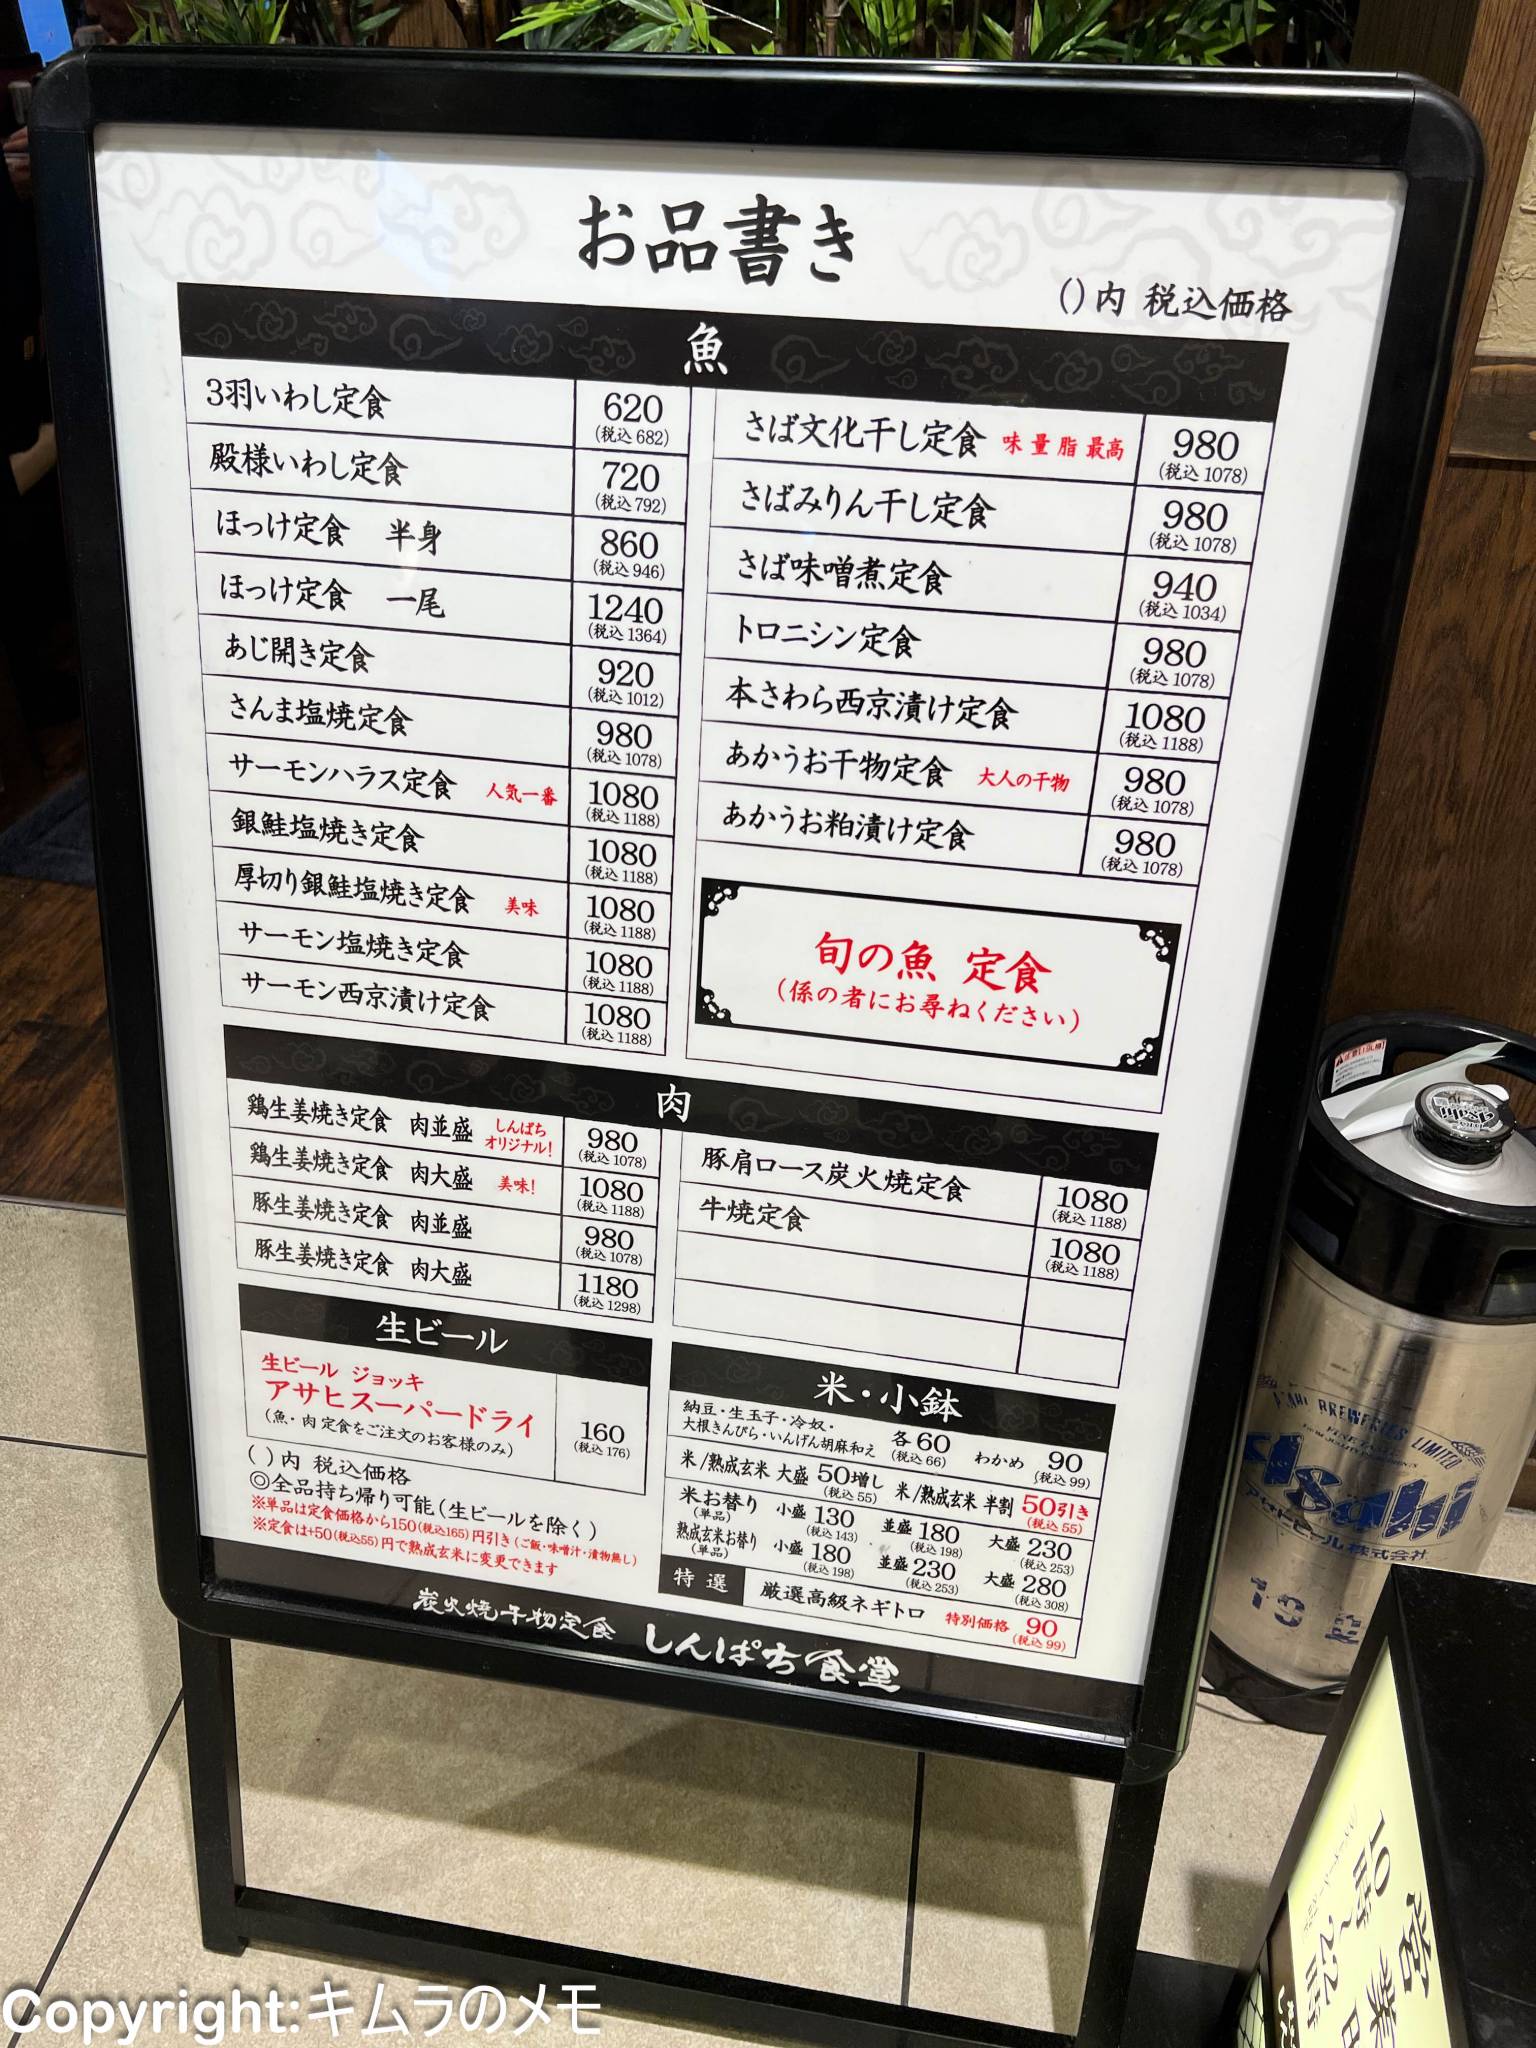 お品書き
()内 税込価格
魚
3羽いわし定食 620 (税込682)
殿様いわし定食 720 (税込792)
ほっけ定食 半身 860 (税込946)
ほっけ定食 一尾 1240 (税込1364)
あじ開き定食 920 (税込1012)
さんま塩焼定食 980 (税込1078)
サーモンハラス定食 人気一番 1080 (税込1188)
銀鮭塩焼き定食 1080 (税込1188)
厚切り銀鮭塩焼き定食 美味 1080 (税込1188)
サーモン塩焼き定食 1080 (税込1188)
サーモン西京漬け定食 1080 (税込1188)
さば文化干し定食 味量脂最高 980 (税込1078)
さばみりん干し定食 980 (税込1078)
さば味噌煮定食 940 (税込1034)
トロニシン定食 980 (税込1078)
本さわら西京漬け定食 1080 (税込1188)
あかうお干物定食 大人の干物 980 (税込1078)
あかうお粕漬け定食 980 (税込1078)
旬の魚 定食
(係の者にお尋ねください)
肉
鶏生姜焼き定食 肉並盛 しんぱちオリジナル! 980 (税込1078)
鶏生姜焼き定食 肉大盛 美味! 1080 (税込1188)
豚生姜焼き定食 肉並盛 980 (税込1078)
豚生姜焼き定食 肉大盛 1180 (税込1298)
豚肩ロース炭火焼定食 1080 (税込1188)
牛焼定食 1080 (税込1188)
生ビール
生ビール ジョッキ
アサヒスーパードライ 160 (税込176)
(魚・肉 定食をご注文のお客様のみ)
()内 税込価格
◎全品持ち帰り可能(生ビールを除く)
※単品は定食価格から150(税込165)円引き(ご飯・味噌汁・漬物無し)
※定食は+50(税込55)円で熟成玄米に変更できます
米・小鉢
納豆・生玉子・冷奴・
大根きんぴら・いんげん胡麻和え 各60 (税込66) わかめ 90 (税込99)
米/熟成玄米 大盛 50増し (税込55) 米/熟成玄米 半割 50引き (税込55)
米お替り (単品) 小盛 130 (税込143) 並盛 180 (税込198) 大盛 230 (税込253)
熟成玄米お替り (単品) 小盛 180 (税込198) 並盛 230 (税込253) 大盛 280 (税込308)
特選 厳選高級ネギトロ 特別価格 90 (税込99)
炭火焼干物定食 しんぱち食堂
Asahi
ASAHI BREWERIES LIMITED
Asahi
アサヒビール株式会社
営業時
10時〜22時
Copyright:キムラのメモ